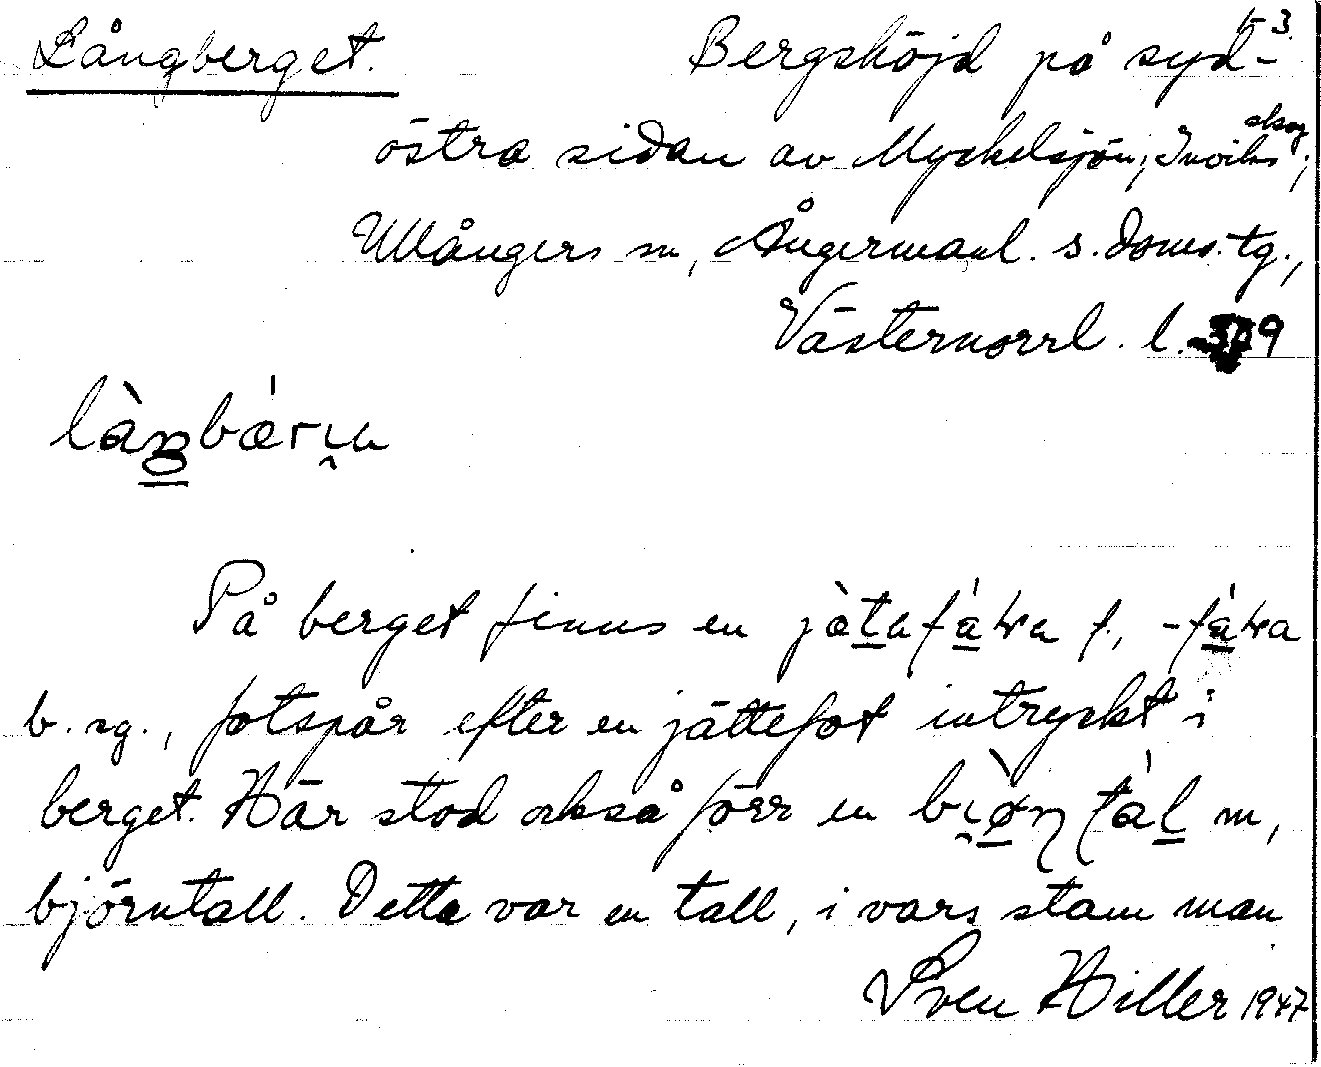 Långberget. Bergshöjd på syd- 1-3.
östra sidan av Myckelsjön, Inviks skog;
Ullångers sn, Ångermanl. s. doms. tg.,
Västernorrl. l.
På berget finns en jàtafáŧra f.,
b. sg., fotspår efter en jättefot intryckt i
berget. Här stod också förr en m,
björntall. Detta var en tall, i vars stam man
Sven Hiller 1947